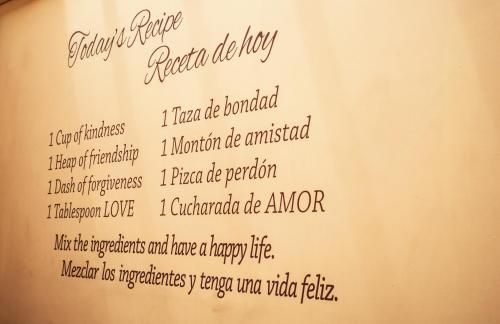 Today's Recipe
Receta de hoy
1 Cup of kindness
1 Heap of friendship
1 Dash of forgiveness
1 Tablespoon LOVE
1 Taza de bondad
1 Montón de amistad
1 Pizca de perdón
1 Cucharada de AMOR
Mix the ingredients and have a happy life.
Mezclar los ingredientes y tenga una vida feliz.